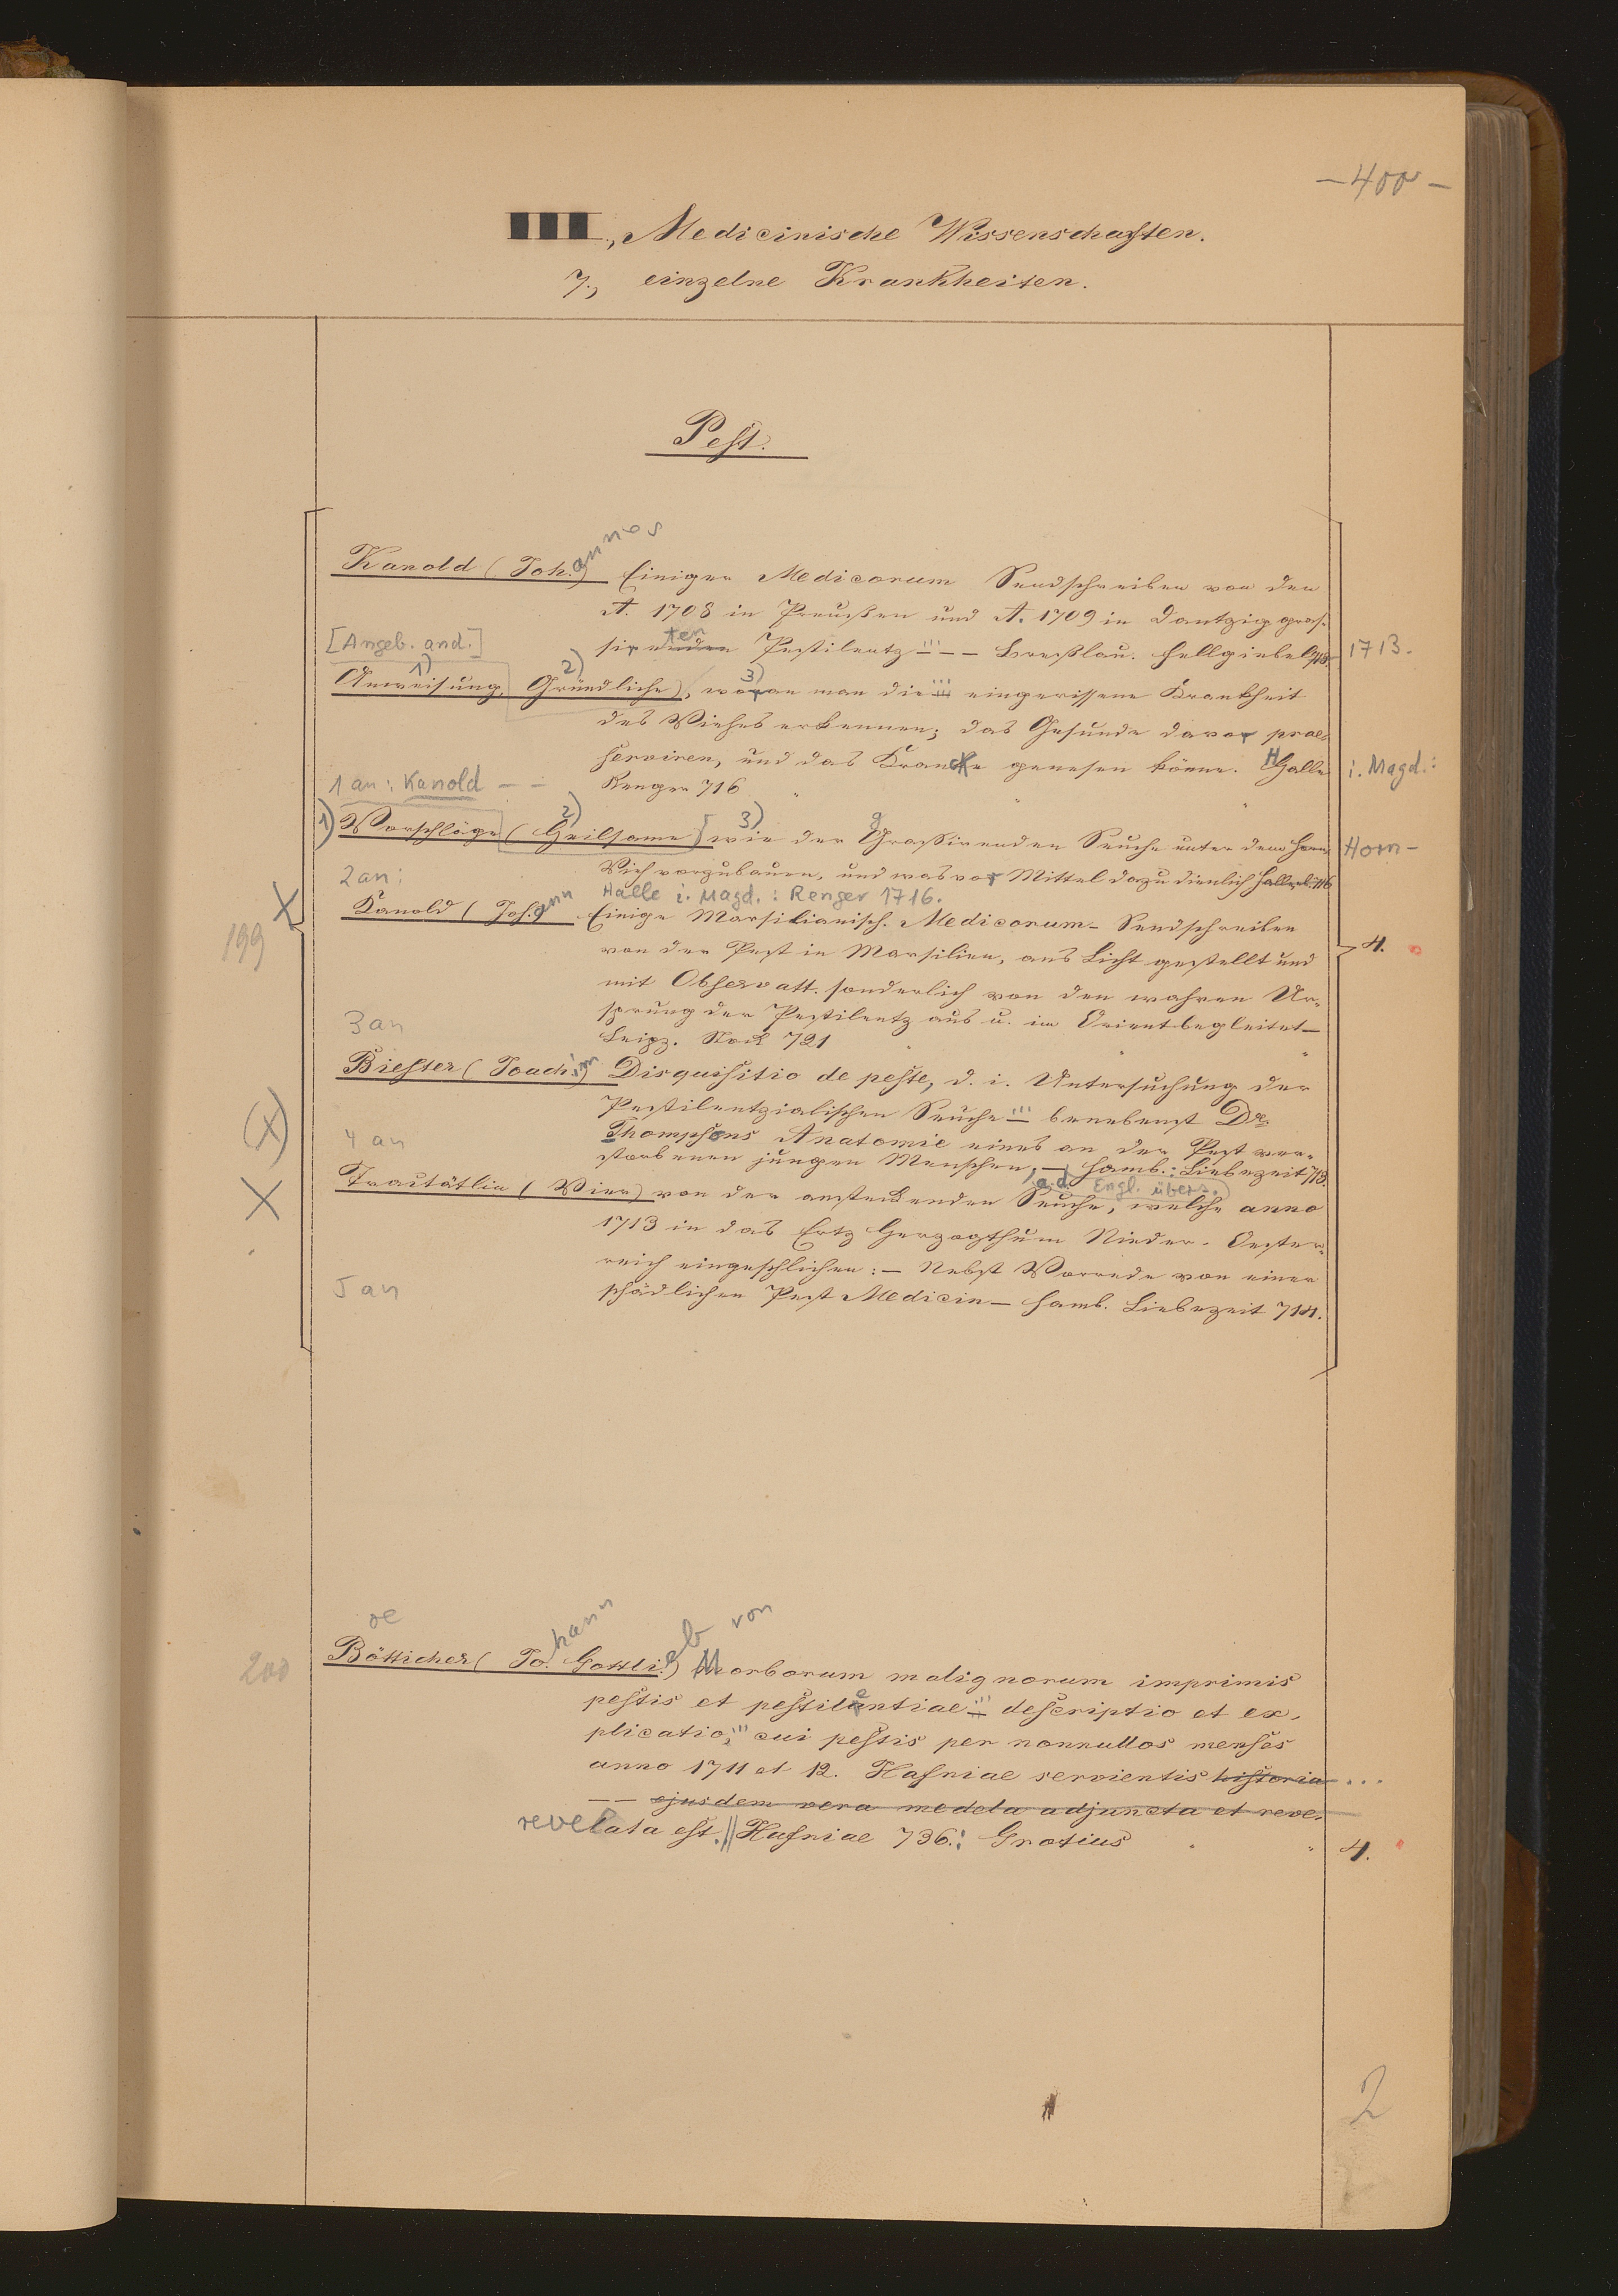 - 400 -
III., Medicinische Wissenschaften.
7., einzelne Krankheiten.
Pest.
Kanold (Joh.annes) Einiger Medicorum Sendschreiben von der
A. 1708 in Preußen und A. 1709 in Dantzig gras-
[Angeb. and.] sirenden ten Pestilentz ''' - - Breßlau. Fellgiebel 713 1713.
1) 2) 3)
Anweisung, Gründliche), woran man die ''' eingerissene Krankheit
des Viehes erkennen; das Gesunde davor prae-
serviren, und das Krancke genesen könne. Halle i. Magd.:
1 an: Kanold - - Renger 716 "
1) 2) 3) g
Vorschläge (Heilsame) wie der Grassirenden Seuche unter dem Horn Horn-
2 an: Vieh vorzubauen, und was vor Mittel dazu dienlich Halle eb. 716
Halle i. Magd.: Renger 1716.
X Kanold (Joh.ann Einige Marsilianisch. Medicorum- Sendschreiben
199 von der Pest in Marsilien, ans Licht gestellt und 4.
mit Observatt. sonderlich von den wahren Ur-
3 an sprung der Pestilentz aus u. im Orient begleitet-
Leipz. 721 " "
Biester (Joachim) Disquisitio de peste, d. i. Untersuchung der
Pestilentzialischen Seuche ''' benebenst Dr.
(X) 4 an Thompsons Anatomie eines an der Pest ver-
storbenen jungen Menschen, - Hamb.: Liebezeit 713.
(a. d. Engl. übers.)
X Tractätlin (Vier) von der ansteckenden Seuche, welche anno
1713 in das Ertz Herzogthum Nieder-Oester-
reich eingeschlichen: - Nebst Vorrede von einer
5 an schädlichen Pest Medicin - Hamb. Liebezeit 714.
oe hann eb von
200 Bötticher (Jo. Gottli.) Morborum malignorum imprimis
pestis et pestilentiae ''' descriptio et ex-
plicatio, ''' cui pestis per nonnullos menses
anno 1711 et 12. Hafniae servientis historia ...
-- ejusdem vera medela adjuncta et reve-
revelata est. || Hafniae 736.: Grotius " 4.
2